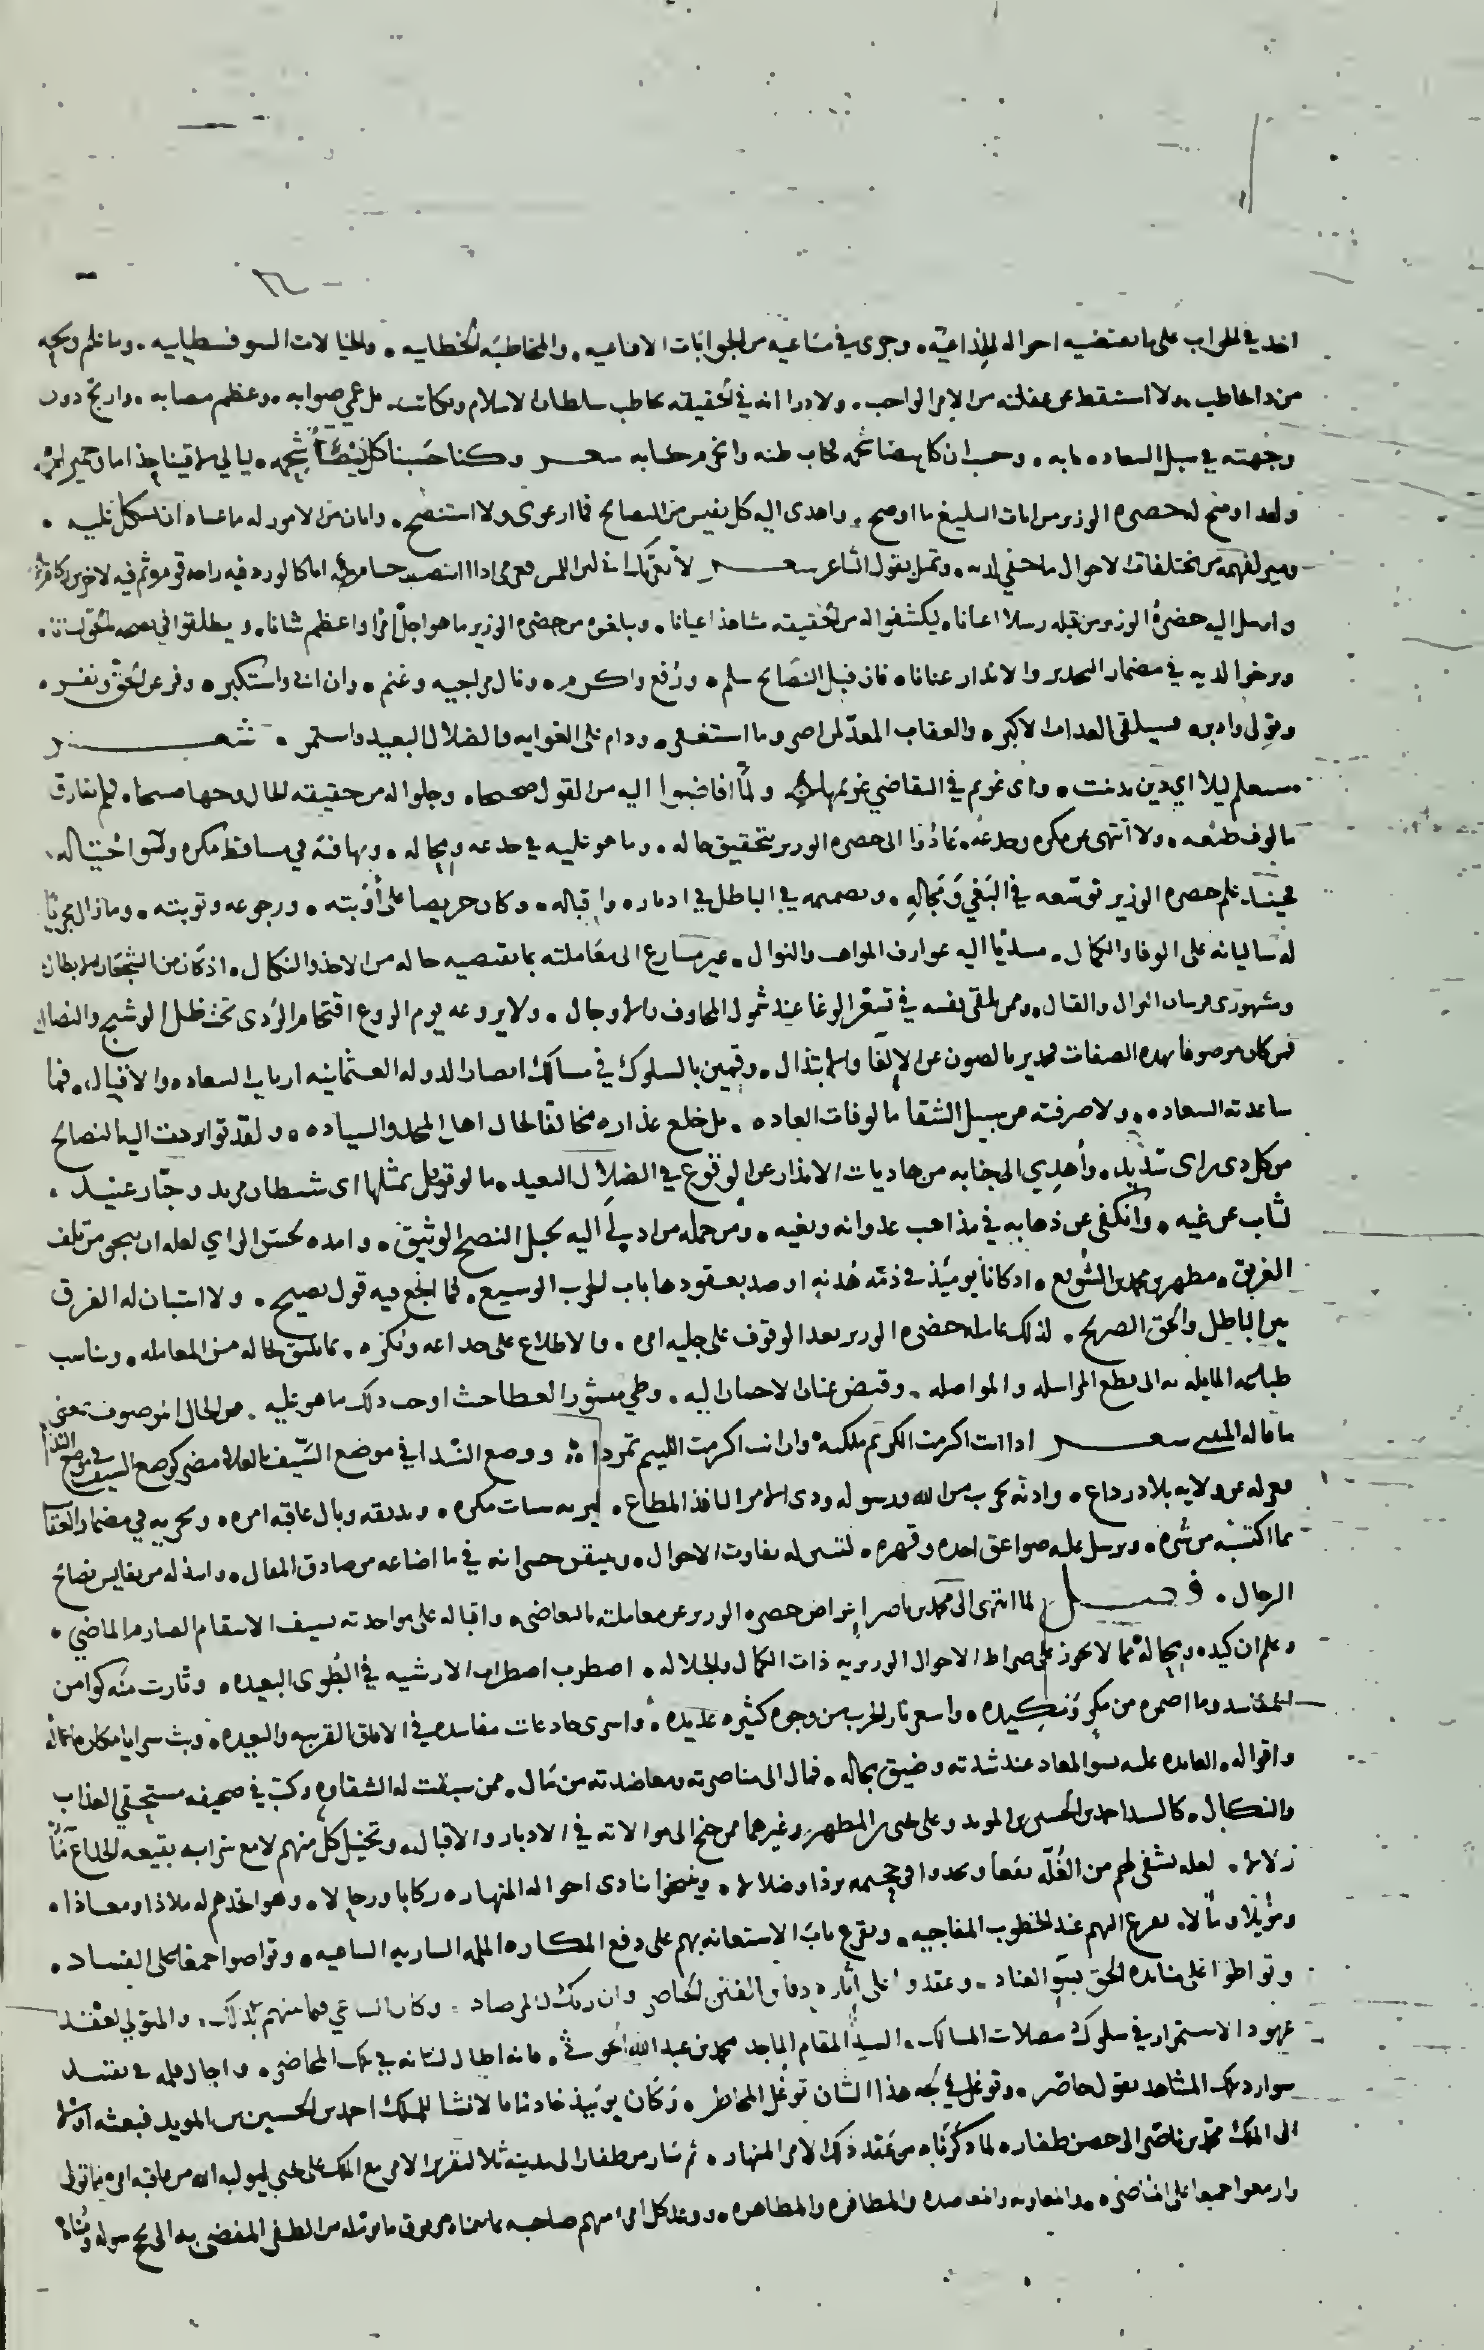 اخذ في الجواب على ما تقتضيه احواله الخداعية. وجرى في مساعيه من الجوابات الاقناعيه. والمخاطبه الخطابيه. والخيالات السوفسطاييه. وما علم ويحه
من ذا خاطب. ولا استيقظ من غفلته من الامر الواجب. ولا درا انه في تحقيقه مخاطب سلطان الاسلام ومكاتب. بل عمي صوابه. وعظم مصابه. وارتج دون
وجهته في سبل السعاده بابه. وحسب ان كل بيضا شحمه فخاب ظنه وانخرم حسابه شعر وكنا حسبنا كل بيضآء شحمه. ليالي لاقينا جذاما وحميرا
ولقد اوضح له حضره الوزير من ايات التبليغ ما اوضح. واهدى اليه كل نفيس من النصائح فما ارعوى ولا استنصح. وابان من الامور له ما عساه ان يشكل عليه.
وميز لفهمه من مختلفات الاحوال ما خفي لديه. وتمثل بقول الشاعر شعر لا
وارسل اليه حضرة الوزير من قبله رسلا اعيانا. ليكشفوا له من الحقيقه مشاهدا عيانا. وبلغوه من حضره الوزير ما هو اجل امرا واعظم شانا. ويطلقوا في نصحه للحق لسانا.
ويرخوا لديه في مضمار التحذير والانذار عنانا. فان قبل النصائح سلم. ورفع واكرم. ونال مراجيه وغنم. وان ابى واستكبر. وفر عن الحق ونفر.
وتولى وادبر. فسيلقى العذاب الاكبر. والعقاب المعد لمن اصر وما استغفر. ودام على الغوايه والضلال البعيد واستمر. شعر
ستعلم ليلا اي دين تدينت. واي غريم في التقاضي غريمها. ولما افاضوا اليه من القول صحيحا. وجلوا له من حقيقة الحال وجها صبيحا. لم يفارق
مالوف طبعه. ولا انتهى عن مكره وخدعه. عادوا الى حضره الوزير بتحقيق حاله. وما هو عليه في خدعه ومحاله. وتهافته في مساقط مكره وسوء احتياله.
فحينئذ علم حضره الوزير توسعه في البغي ومجاله. وتصميمه في الباطل في ادباره واقباله. وكان حريصا على أوبته. ورجوعه وتوبته. وما زال مجريا
له ساليانه على الوفا والكمال. مسديا اليه عوارف المواهب والنوال. غير مسارع الى معاملته بما يقتضيه حاله من الاخذ والنكال. اذ كان من الشجعان الابطال
ومشهوري فرسان النزال والقتال. وممن يلقي نفسه في تسعر الوغا عند شمول المخاوف والاوجال. ولا يروعه يوم الروع اقتحام الردى تحت ظلل الوشيج والنصال
فمن كان موصوفا بهذه الصفات فجدير بالصون عن الالقا والابتذال. وقمين بالسلوك في مسالك انصار الدوله العثمانيه ارباب السعاده والاقبال. فما
ساعدته السعاده. ولا صرفته عن سبيل الشقا مالوفات العاده. بل خلع عذاره مخالفا لحال اهل المجد والسياده. ولقد تواردت اليه النصائح
من كل ذي راى سديد. وأهدي الى جنابه من هاديات الانذار عن الوقوع في الضلال البعيد. ما لو قوبل بمثلها اى شيطان مريد وجبار عنيد.
لثاب عن غيه. وانكفى عن ذهابه في مذاهب عدوانه وبغيه. ومن جمله من ادلى اليه بحبل النصح الوثيق. وامده بحسن الراي لعله ان ينجى من تلف
الغريق. مطهر بن محمد بن الشويع. اذ كانا يوميئذ في ذمه هدنه اوصد بعقودها باب الحرب الوسيع. فما انجع فيه قول نصيح. ولا استبان له الفرق
بين الباطل والحق الصريح. لذلك عامله حضره الوزير بعد الوقوف على جليه امره. والاطلاع على خداعه ونكره. بما يليق بحاله من المعامله. ويناسب
طباعه المايله به الى قطع المراسله والمواصله. وقبض عنان الاحسان اليه. وطي منشور العطا حيث اوجب ذلك ما هو عليه. من الحال الموصوف بمعنى
ما قاله المتنبي شعر اذا انت اكرمت الكريم ملكته وان انت اكرمت اللئيم تمردا ووضع الندا في موضع السيف بالعلا مضر كوضع السيف في موضع الندا
فعزله عن ولايه بلاد رداع. واذنه بحرب من الله ورسوله وذي الامر النافذ المطاع. ليريه سيات مكره. ويذيقه وبال عاقبه امره. ويجزيه في مضمار العقاب
بما اكتسبه من شره. ويرسل عليه صواعق اخذه وقهره. لتتبين له تفاوت الاحوال. ويتيقن خسرانه في ما اضاعه من صادق المقال. وابتذله من نفايس نصائح
الرجال. فصل لما انتهى الى محمد بن ناصر إعراض حضره الوزير عن معاملته بالتغاضي. واقباله على مواخذته بسيف الانتقام الصارم الماضي.
وعلم ان كيده ومحاله مما لا يجوز على صراط الاحوال الوزيريه ذات الكمال والجلاله. اضطرب اضطراب الارشيه في الطوى البعيده. وثارت منه كوامن
المفاسد وما اضمره من مكر ومكيده. واسعر نار الحرب من وجوه كثيره عديده. واسرى خادعات مفاسده في الافاق القريبه والبعيده. وبث سرايا مكاره افعاله
واقواله. العايده عليه بسوء المعاد عند شدته وضيق مجاله. فمال الى مناصرته ومعاضدته من مال. ممن سبقت له الشقاوه وكتب في صحيفه مستحقي العذاب
والنكال. كالسيد احمد بن الحسين بن المويد وعلي يحيى بن المطهر وغيرهما ممن جنح الى موالاته في الادبار والاقبال. وتخيل كل منهم لامع سرابه بقيعه الخداع مآء
زلالا. لعله يشفى لهم من الغله نقعا وبردا وفي جحيمه برداً وظلالا. وينضوا بنادى احواله المنهاره ركابا ورجالا. وهو اتخذهم له ملاذا ومعاذا.
وموئلا ومآلا. يفزع اليهم عند الخطوب المفاجيه. ويقرع باب الاستعانه بهم على دفع المكاره الملمه الساريه الساعيه. وتواصوا جميعا على الفساد.
وتواطوا على منابذه الحق بسوء العناد. وعقدوا على إثاره دفاين الفتن الخناصر وان ربك لبالمرصاد. وكان الساعي فيما بينهم بذلك. والمتولي لعقد
عهود الاستمرار في سلوك مضلات المسالك. السيد المقام الماجد محمد بن عبد الله الحوثي. فانه اطال لسانه في تلك المحاضر. واجال قلمه في تقييد
سوارد تلك المشاهد بقول حاضر. وتوغل في لجه هذا الشان توغل المخاطر. وكان يوميئذ خادنا بالانشا للملك احمد بن الحسين بن المويد فبعثه اولا
الى الملك محمد بن ناصر الى حصن ظفار. لما ذكرناه من عقد ذلك الامر المنهار. ثم سار من ظفار الى مدينه ثلا لتقرير الامر مع الملك علي يحيى ليوليه الله من عاقبه امره ما تولى
وازمعوا جميعا على التناصر. والمعاونه والمعاضده والمظافره والمظاهره. ووعد كل امرء منهم صاحبه